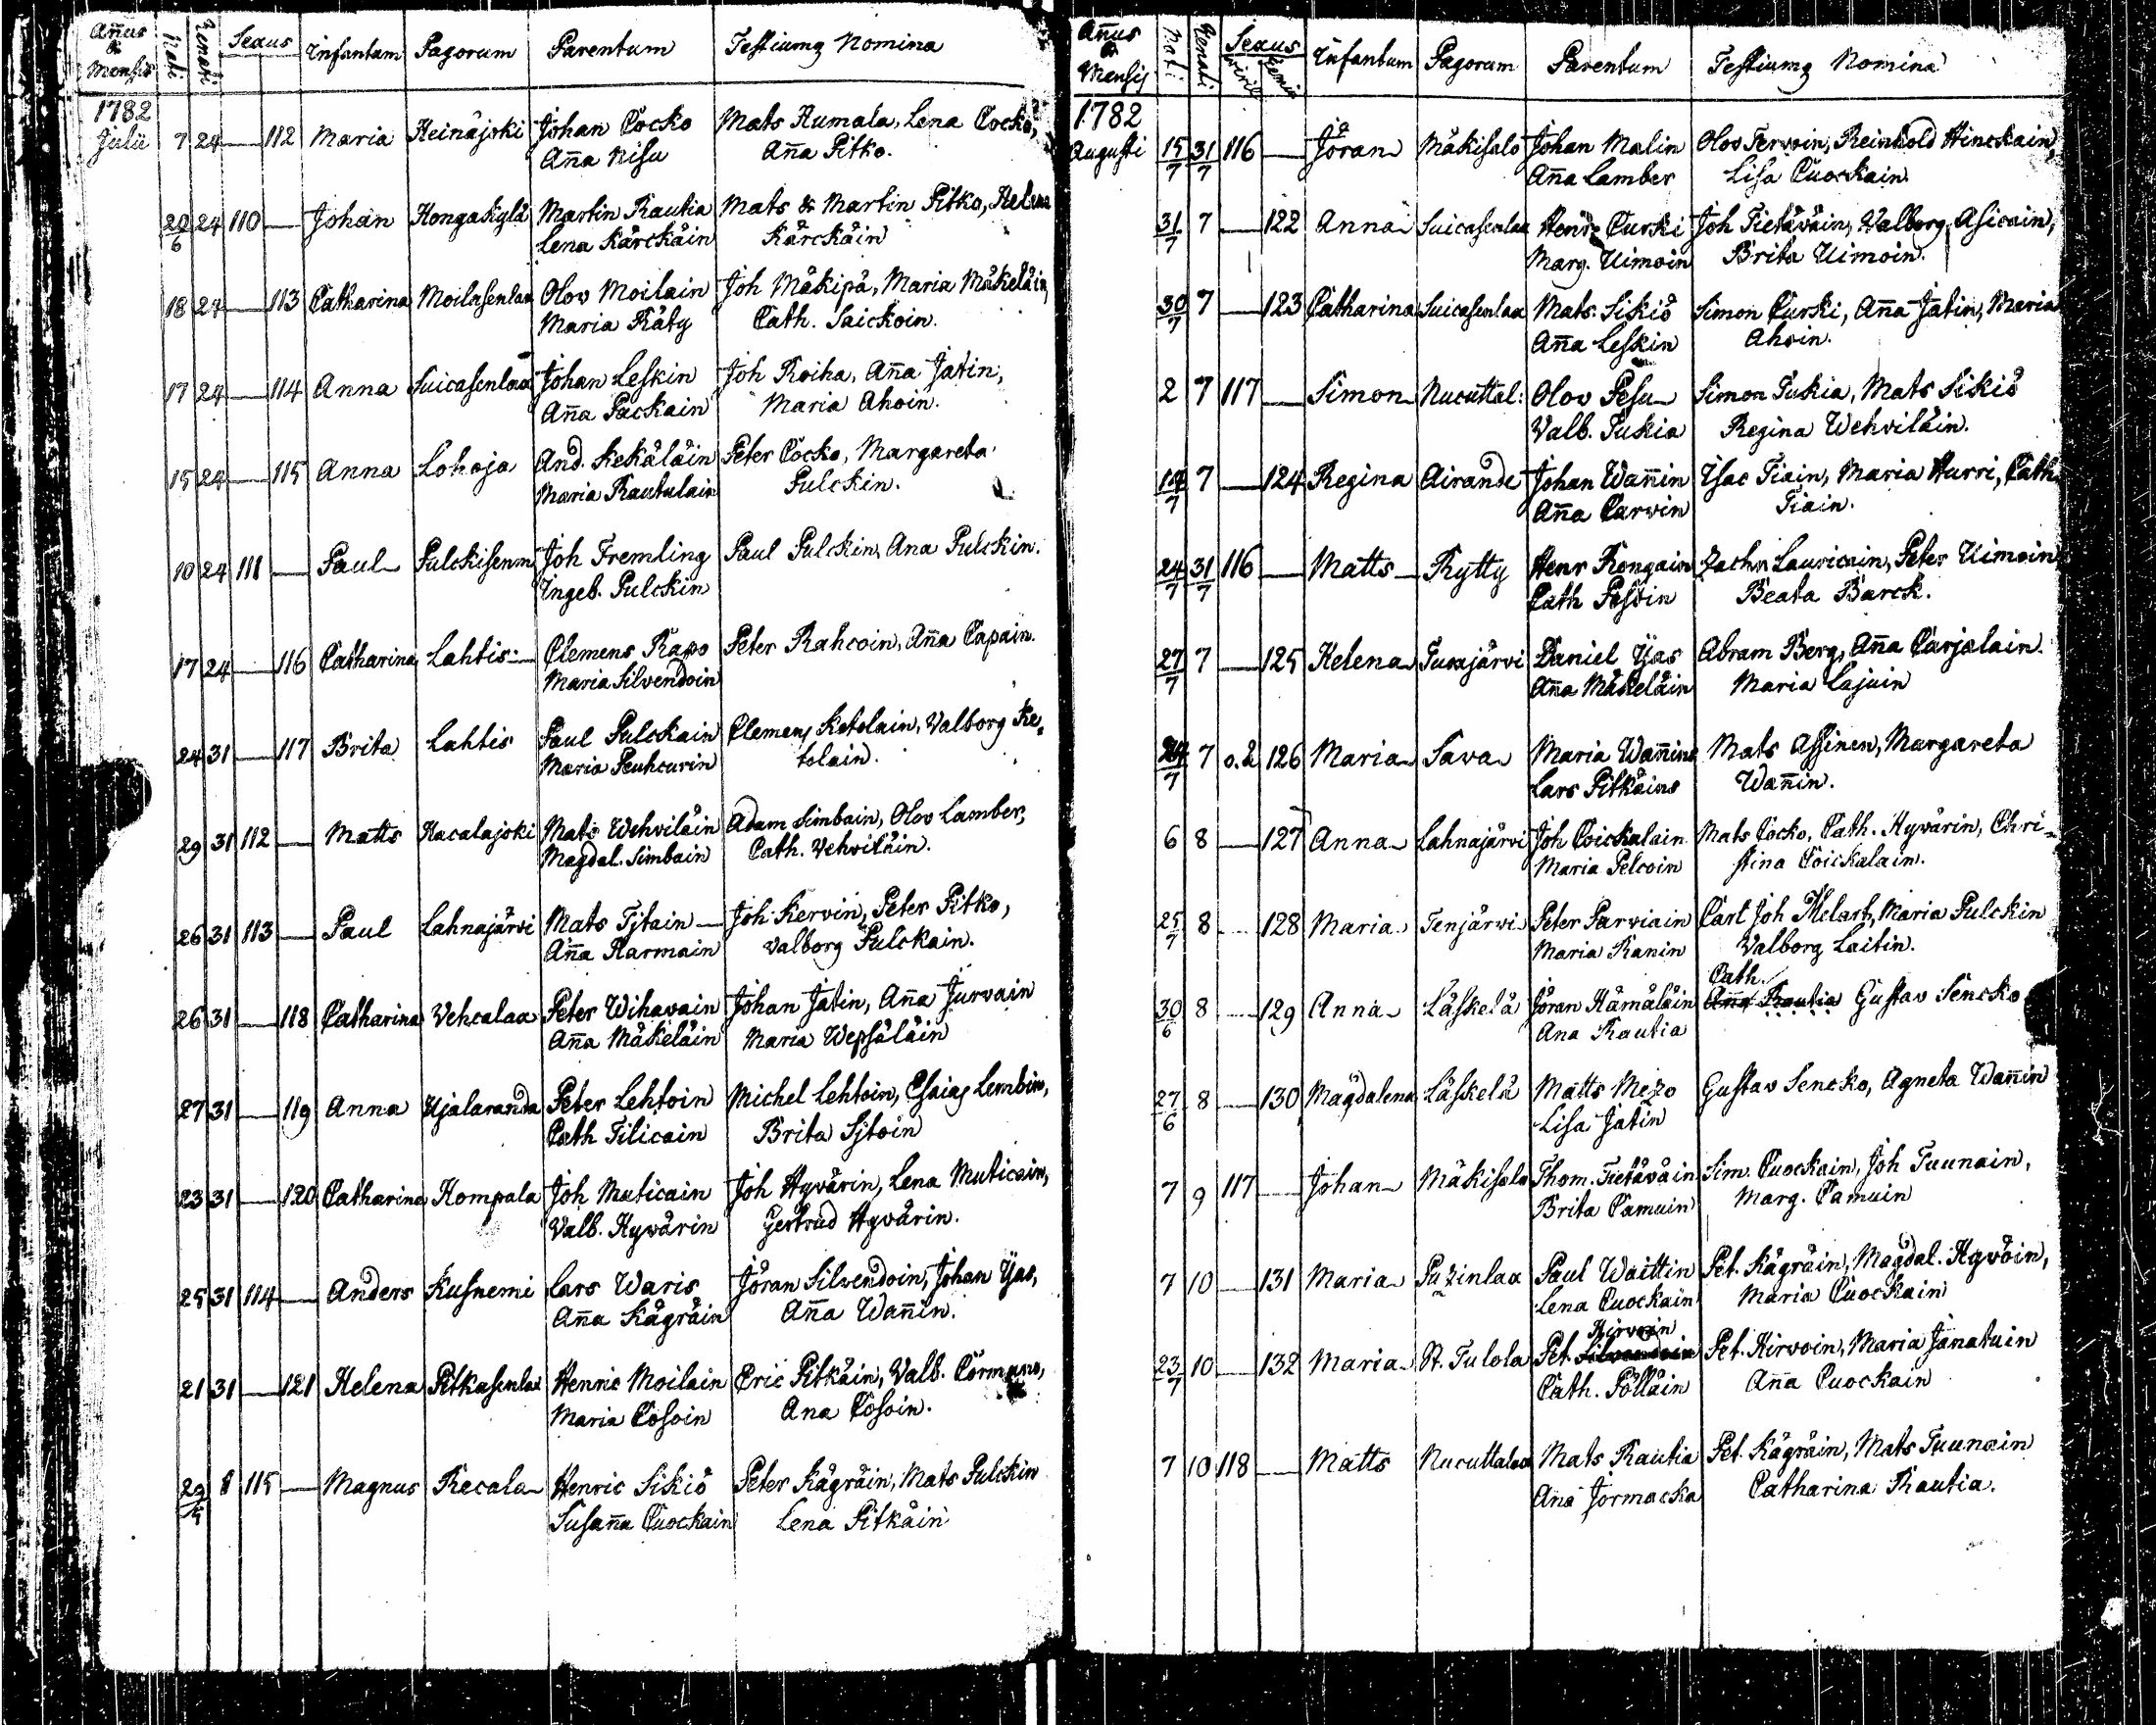 Añus & Mensis Nati Renati Sexus Infantam Pagorum Parentum Testiumq Nomina
1782
Julii 7 24 — 112 Maria Heinäjoki Johan Cocko Mats Humala, Lena Cocko,
Aña Nisu Aña Pitko.
20/6 24 110 — Johan Hongakylä Martin Rautia Mats & Martin Pitko, Helena
Lena Kärckäin Kärckäin
18 24 — 113 Catharina Moilasenlax Olov Moilain Joh Mäkipä, Maria Mäkeläin,
Maria Räty Cath. Saickoin.
17 24 — 114 Anna Suicasenlax Johan Leskin Joh Roiha, Aña Jatin,
Aña Packain Maria Ahoin.
15 24 — 115 Anna Lohoja And. Kekäläin Peter Cocko, Margareta
Maria Rautulain Pulckin.
10 24 111 — Paul Pulckisenm Joh Fremling Paul Pulckin, Ana Pulckin.
Ingeb. Pulckin
17 24 — 116 Catharina Lahtis Clemens Rapo Peter Rahcoin, Aña Capain.
Maria Silvendoin
24 31 — 117 Brita Lahtis Paul Pulckain Clemens Ketolain, Valborg Ke-
Maria Peuhcurin tolain.
29 31 112 — Matts Hacalajoki Mats Wehviläin Adam Simbain, Olov Lamber,
Magdal. Simbain Cath. Vehviläin.
26 31 113 — Paul Lahnajärvi Mats Tjtain Joh. Kervin, Peter Pitko,
Aña Harmain Valborg Pulckain.
26 31 — 118 Catharina Vehcalax Peter Wihavain Johan Jatin, Aña Jurvain
Aña Mäkeläin Maria Wepsäläin
27 31 — 119 Anna Ujalaranda Peter Lehtoin Michel Lehtoin, Esaias Lembin,
Cath Tilicain Brita Sjtoin
23 31 — 120 Catharina Kompala Joh Muticain Joh Hyvärin, Lena Muticain,
Valb. Hyvärin Gertrud Hyvärin.
25 31 114 — Anders Kusnemi Lars Waris Jöran Silvendoin, Johan Yas,
Aña Kägräin Aña Wañin.
21 31 — 121 Helena Pitkasenlax Henric Moilain Eric Pitkäin, Valb. Cörmans,
Maria Cosoin Ana Cosoin.
29 8 115 — Magnus Recala Henric Sikiö Peter Kägräin, Mats Pulckin
Susaña Cuockain Lena Pitkäin
Añus & Mensis Nati Renati Sexus viril femin Infantum Pagorum Parentum Testiumq Nomina
1782
Augusti 15/7 31/7 116 — Jöran Mäkisalo Johan Malin Olov Tervoin, Reinhold Hinckain,
Aña Lamber Lisa Cuockain
31/7 7 — 122 Anna Suicasenlax Henr. Curki Joh Tietäväin, Valborg Asicain,
Marg. Uimoin Brita Uimoin.
30/7 7 — 123 Catharina Suicasenlax Mats Sikiö Simon Curki, Aña Jatin, Maria
Aña Leskin Ahoin.
2 7 117 — Simon Nucuttal: Olov Pesu Simon Tukia, Mats Sikiö
Valb. Tukia Regina Wehviläin.
14/7 7 — 124 Regina Airande Johan Wañin Isac Tiain, Maria Hurri, Cath.
Aña Carvin Tiain.
24/7 31/7 116 — Matts Rytty Henr Rongain Zachr Lauricain, Peter Uimoin
Cath Pesoin Beata Barck.
27/7 7 — 125 Helena Tuoxjärvi Daniel Yas Abram Berg, Aña Carjalain.
Aña Mäkeläin Maria Lajuin
24/7 7 o.ä 126 Maria Sava Maria Wañins Mats Assinen, Margareta
Lars Pitkäins Wañin.
6 8 — 127 Anna Lahnajärvi Joh Coickalain Mats Cocko, Cath. Hyvärin, Chri-
Maria Pelcoin stina Coickalain.
25/7 8 — 128 Maria Tenjärvi Peter Parviain Carl Joh Melart, Maria Pulckin
Maria Ranin Valborg Laitin.
Cath.
30/6 8 — 129 Anna Läskelä Jöran Hämäläin Aña Rautia Gustav Sencko
Ana Rautia
27/6 8 — 130 Magdalena Läskelä Matts Mezo Gustav Sencko, Agneta Wañin
Lisa Jatin
7 9 117 — Johan Mäkisalo Thom. Tietäväin Sim. Cuockain, Joh Tuunain,
Brita Camuin Marg. Camuin
7 10 — 131 Maria Puzinlax Paul Waittin Pet. Kägräin, Magdal. Hyvöin,
Lena Cuockain Maria Cuockain
Hirvoin
23/7 10 — 132 Maria St. Tulola Pet. Silvendoin Pet. Hirvoin, Maria Janatuin
Cath. Pölläin Aña Cuockain
7 10 118 — Matts Nucuttalax Mats Rautia Pet. Kägräin, Mats Tuunain
Ana Jormacka Catharina Rautia.